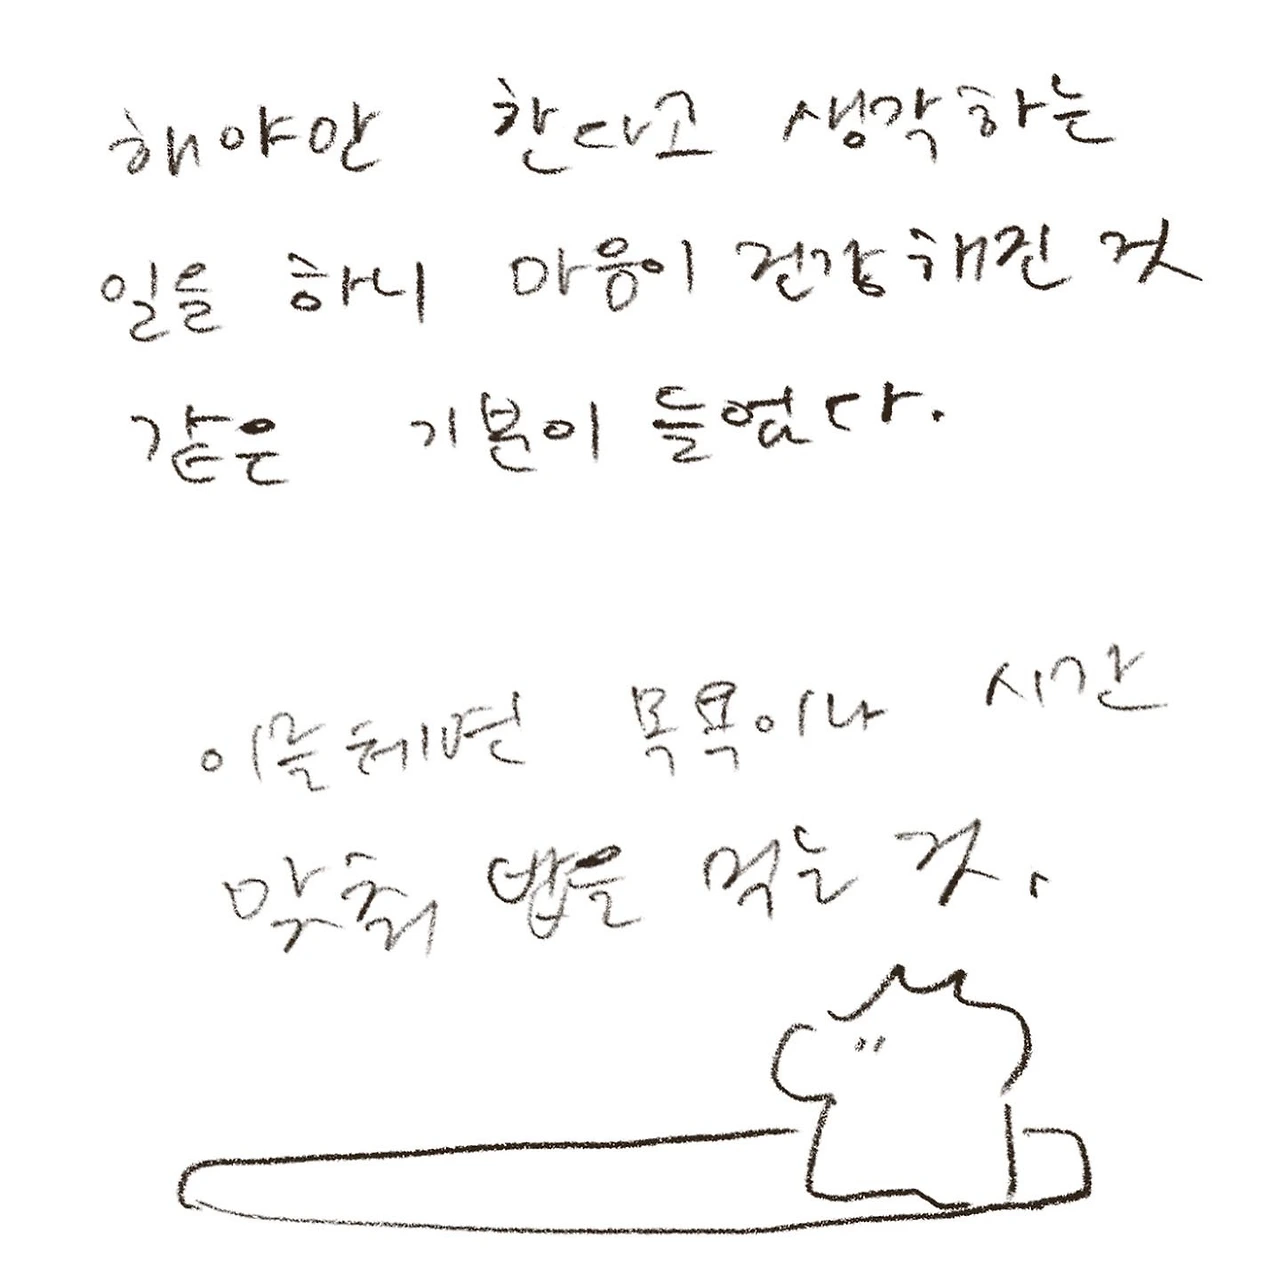 해야만 한다고 생각하는
일을 하니 마음이 건강해진 것
같은 기분이 들었다.
이를테면 목욕이나 시간
맞춰 밥을 먹는 것.